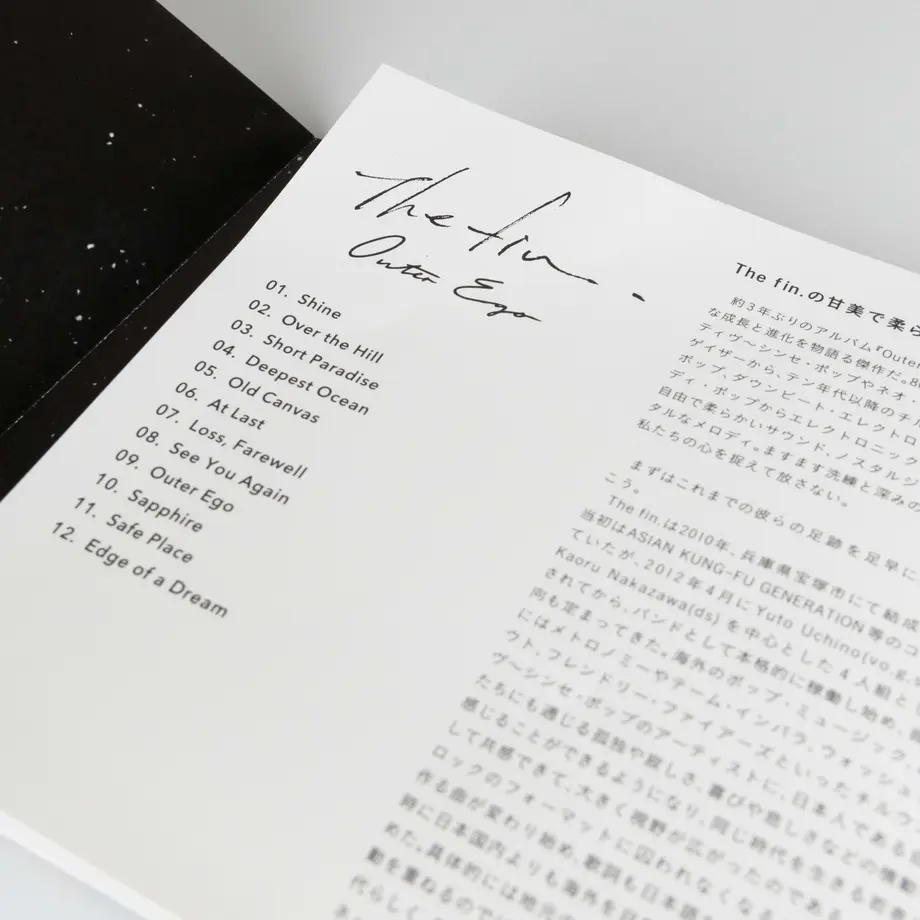 The fin.
Outer Ego
01. Shine
02. Over the Hill
03. Short Paradise
04. Deepest Ocean
05. Old Canvas
06. At Last
07. Loss, Farewell
08. See You Again
09. Outer Ego
10. Sapphire
11. Safe Place
12. Edge of a Dream
The fin.の甘美で柔ら
約3年ぶりのアルバム『Outer
な成長と進化を物語る傑作だ。80
ティヴ〜シンセ・ポップやネオ・
ゲイザーから、テン年代以降のチル
ポップ、ダウンビート・エレクトロ
ディ・ポップからエレクトロニック
自由で柔らかいサウンド、ノスタルジ
タルなメロディ。ますます洗練と深みの
私たちの心を捉えて放さない。
まずはこれまでの彼らの足跡を足早に
こう。
The fin.は2010年、兵庫県宝塚市にて結成
当初はASIAN KUNG-FU GENERATION等のコ
ていたが、2012年4月にYuto Uchino(vo,g,s
Kaoru Nakazawa(ds)を中心とした4人組と
されてから、バンドとして本格的に稼動し始め、
向も定まってきた。海外のポップ・ミュージック、
にはメトロノミーやテーム・インパラ、ウォッシュ
ウト、フレンドリー・ファイアーズといったチルウ
ヴ〜シンセ・ポップのアーティストに、日本人である
たちにも通じる孤独や寂しさ、喜びや悲しさなどの機
感じることができるようになり、同じ時代を生きる
して共感できて、大きく視野が広がったのであ
ロックのフォーマットに囚われなくな
作る曲が変わり始め、歌詞も日本語
時に日本国内よりも海外を
めた。具体的には地元の
動を重ねるので
代らしく、